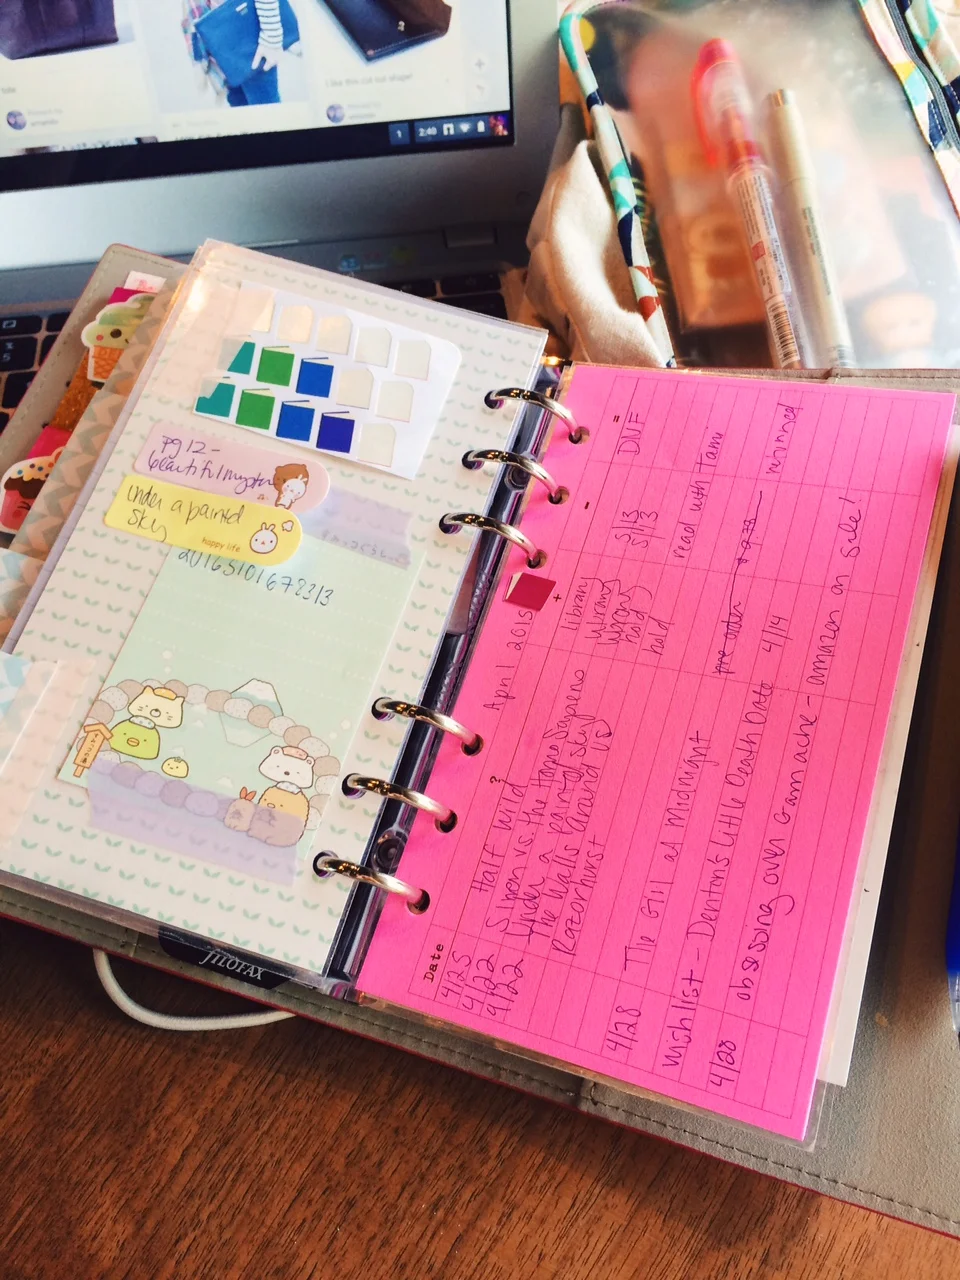 tote
I like this cut out shape!
1 2:48
pg 12 -
beautiful mystery
under a painted
sky
happy life
20165101672313
FILOFAX
April 2015
+ - =
Date
4/25 Half Wild? library DNF
4/22 Simon vs. the Homo Sapiens 5/13
4/22 Under a painted sky 5/13
The Walls Around Us hold
Razorhurst hold
4/28 The Girl at Midnight read with Tami
wishlist - Denton's Little Deathdate 4/14
pre order returned
4/28 obsessing over Gamache - amazon on sale!